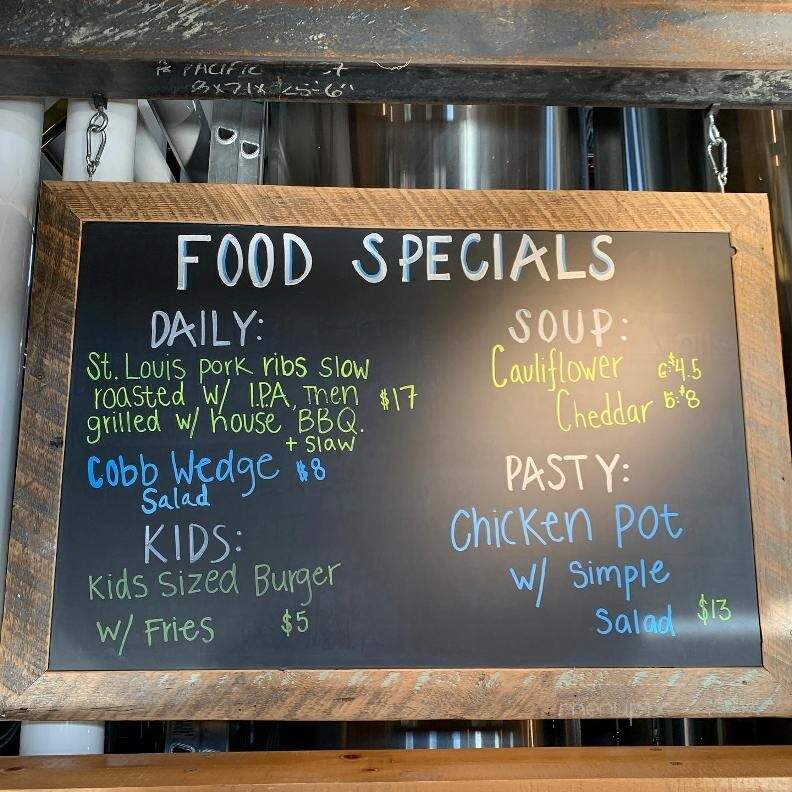 PACIFIC
FOOD SPECIALS
DAILY:
St. Louis pork ribs slow
roasted w/ I.P.A, Then
grilled w/ house BBQ.
+ slaw
$17
Cobb Wedge $8
Salad
KIDS:
Kids Sized Burger
w/ Fries $5
SOUP:
Cauliflower c:$4.5
Cheddar b:$8
PASTY:
Chicken Pot
w/ Simple
Salad $13